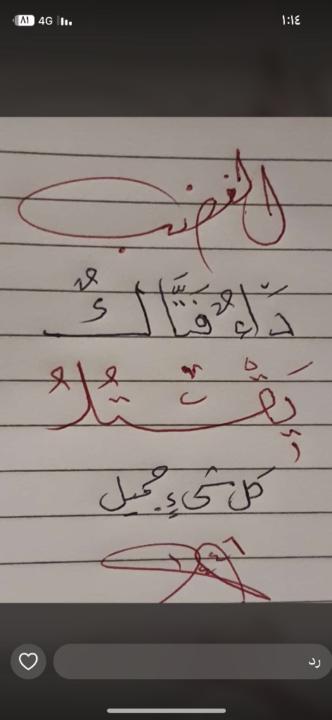 ١:١٤
4G ٨١
الغضب
دَاءٌ قتَّالٌ
يَقْتُلُ
كل شيءٍ جميل
رد